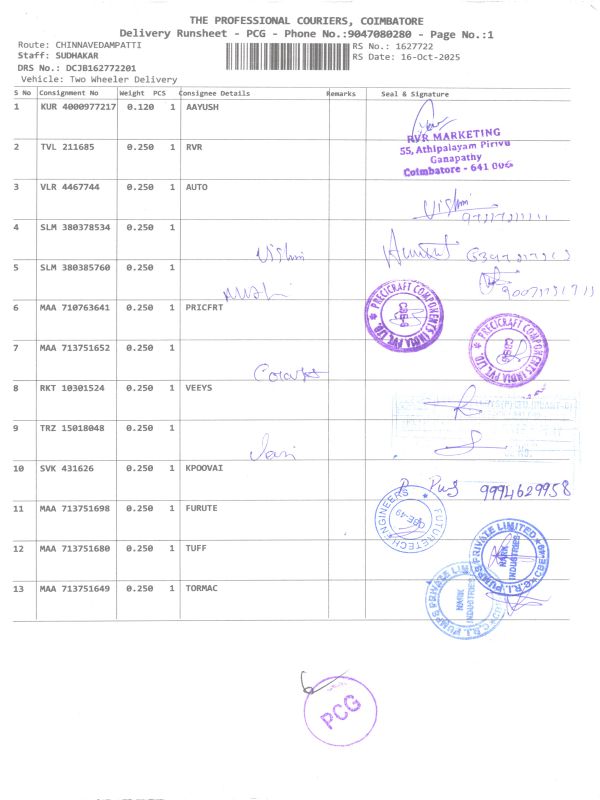 THE PROFESSIONAL COURIERS, COIMBATORE
Delivery Runsheet - PCG - Phone No.:9047080280 - Page No.:1
Route: CHINNAVEDAMPATTI RS No.: 1627722
Staff: SUDHAKAR RS Date: 16-Oct-2025
DRS No.: DCJB162772201
Vehicle: Two Wheeler Delivery
S No Consignment No Weight PCS Consignee Details Remarks Seal & Signature
1 KUR 4000977217 0.120 1 AAYUSH
RVR MARKETING
2 TVL 211685 0.250 1 RVR
55, Athipalayam Pirivu
Ganapathy
Coimbatore - 641 006
3 VLR 4467744 0.250 1 AUTO
Vishni
4 SLM 380378534 0.250 1
Vishni
5 SLM 380385760 0.250 1
6 MAA 710763641 0.250 1 PRICFRT
PRECICRAFT COMPONENTS INDIA PVT. LTD.
7 MAA 713751652 0.250 1
PRECICRAFT COMPONENTS INDIA PVT. LTD.
8 RKT 10301524 0.250 1 VEEYS
9 TRZ 15018048 0.250 1
10 SVK 431626 0.250 1 KPOOVAI
9994629958
11 MAA 713751698 0.250 1 FURUTE
FUTURETECH ENGINEERS CBE-49
12 MAA 713751680 0.250 1 TUFF
C.R.I. PUMPS PRIVATE LIMITED CBE-49
HARIK INDUSTRIES
13 MAA 713751649 0.250 1 TORMAC
C.R.I. PUMPS PRIVATE LIMITED
HARIK INDUSTRIES
PCG